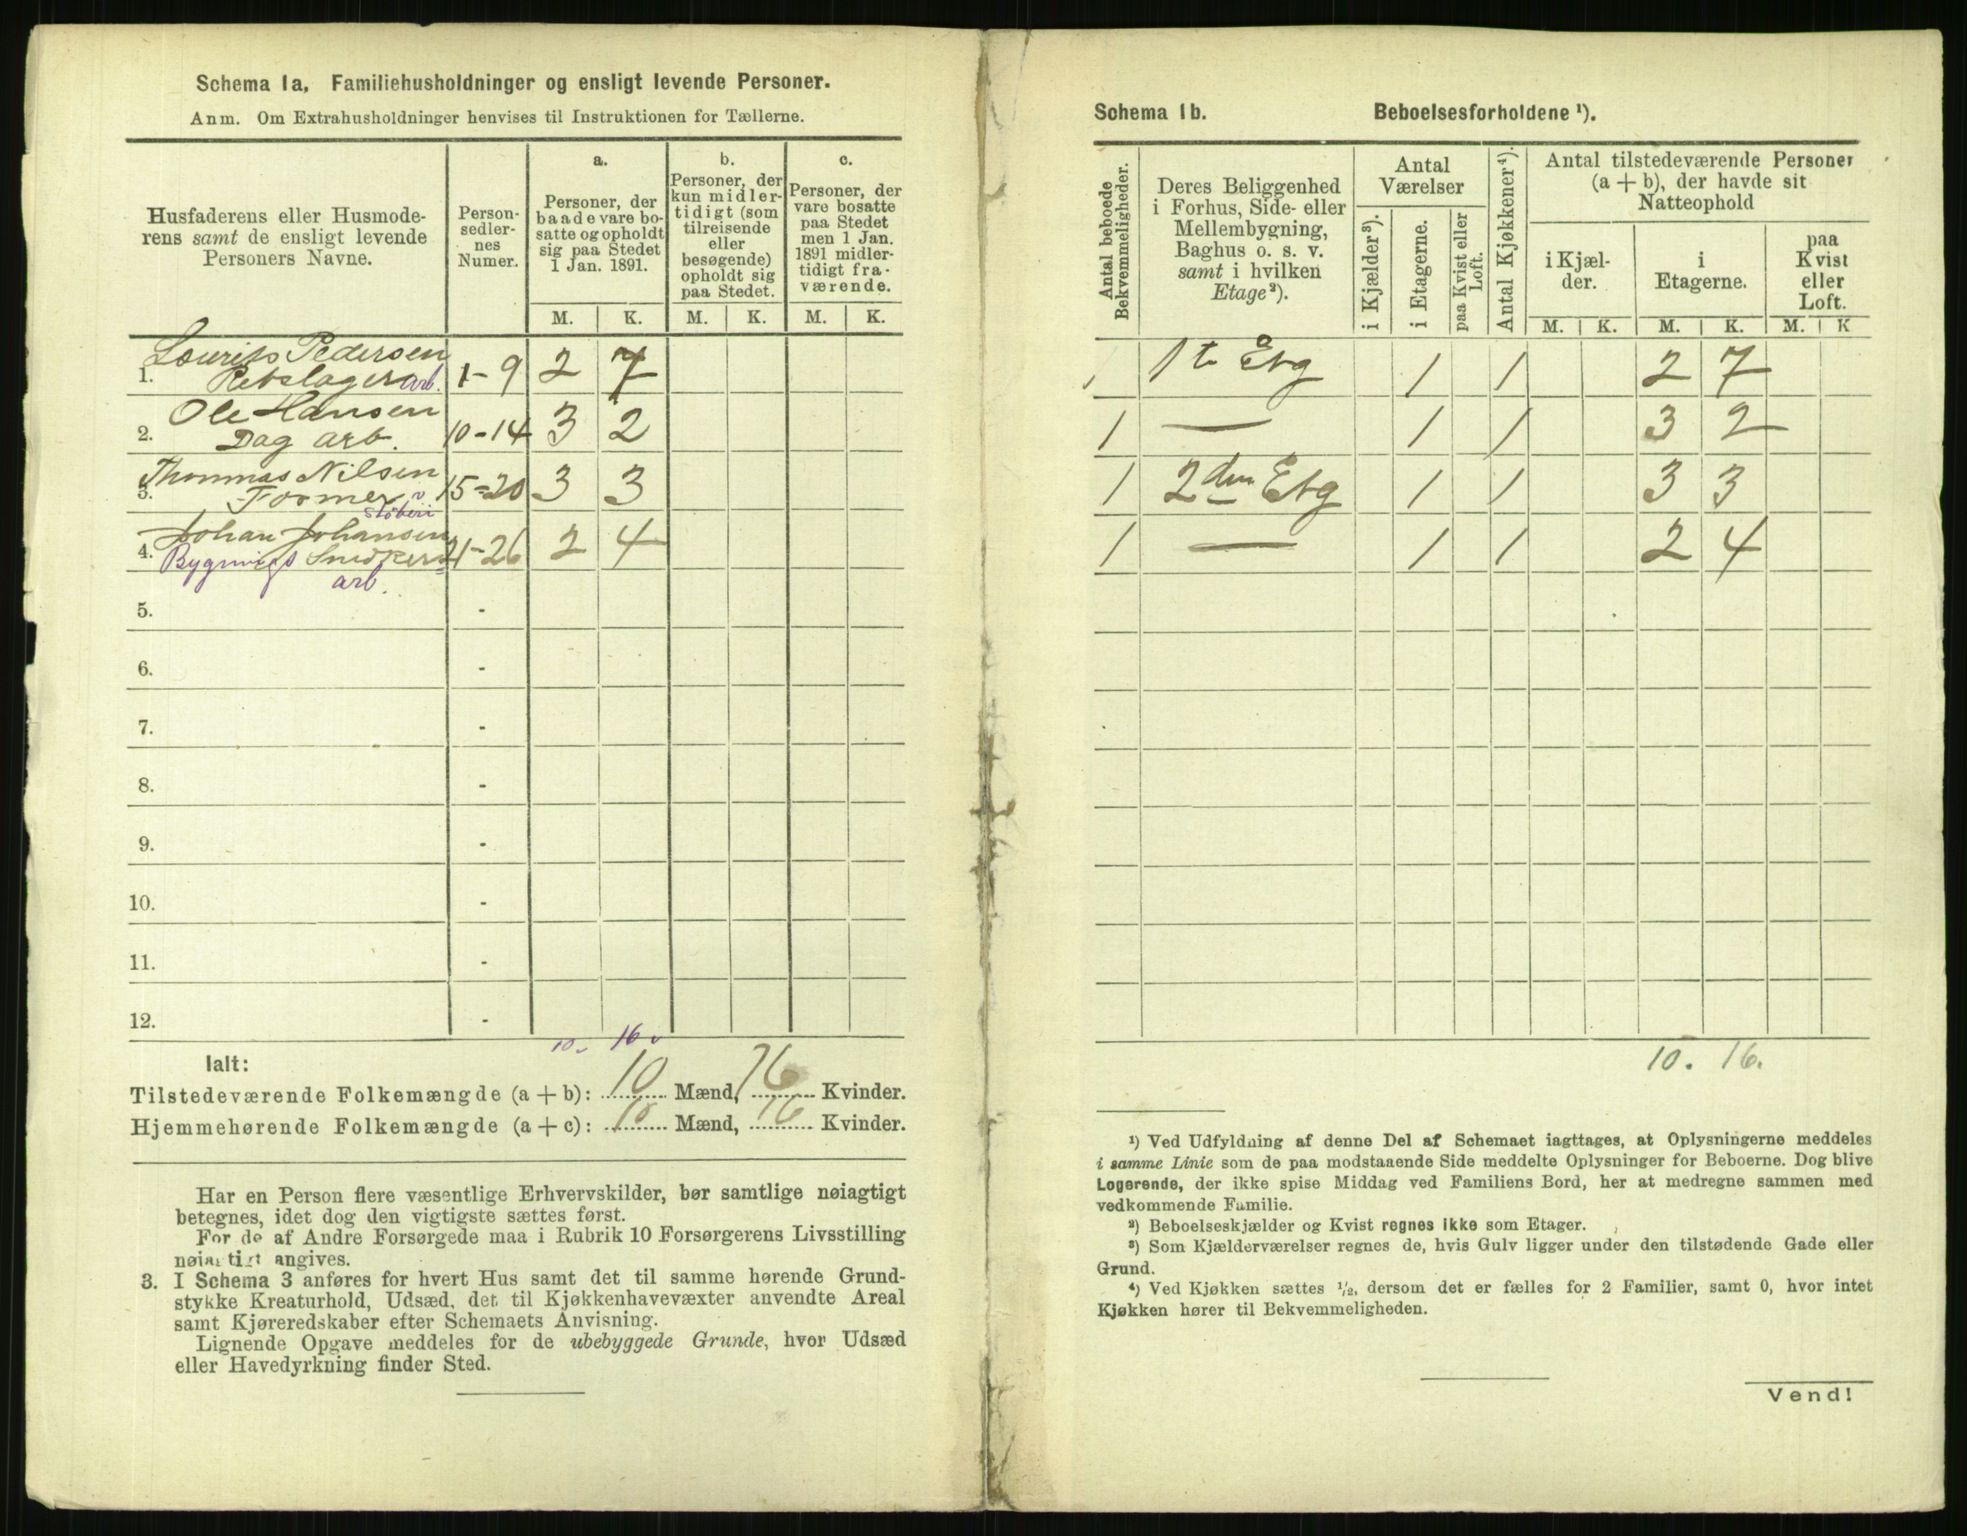 Schema 1a, Familiehusholdninger og ensligt levende Personer.
Anm. Om Extrahusholdninger henvises til Instruktionen for Tællerne.
Husfaderens eller Husmode-
rens samt de ensligt levende
Personers Navne.
Person-
sedler-
nes
Numer.
a.
Personer, der
baade vare bo-
satte og opholdt
sig paa Stedet
1 Jan. 1891.
b.
Personer, der
kun midler-
tidigt (som
tilreisende
eller
besøgende)
opholdt sig
paa Stedet.
c.
Personer, der
vare bosatte
paa Stedet
men 1 Jan.
1891 midler-
tidigt fra-
værende.
M. K. M. K. M. K.
Lourits Pedersen
1. Rebslager arb. 1-9 2 7
Ole Hansen
2. Dag arb. 10-14 3 2
Thommas Nilsen
3. Former v 15-20 3 3
støberi
Johan Johansen
4. Bygnings Snedker 21-26 2 4
arb.
5. -
6. -
7. -
8. -
9. -
10. -
11. -
12. -
10 v 16 v
Ialt:
Tilstedeværende Folkemængde (a + b): 10 Mænd, 16 Kvinder.
Hjemmehørende Folkemængde (a + c): 10 Mænd, 16 Kvinder.
Har en Person flere væsentlige Erhvervskilder, bør samtlige nøiagtigt
betegnes, idet dog den vigtigste sættes først.
For de af Andre Forsørgede maa i Rubrik 10 Forsørgerens Livsstilling
nøiagtigt angives.
3. I Schema 3 anføres for hvert Hus samt det til samme hørende Grund-
stykke Kreaturhold, Udsæd, det til Kjøkkenhavevæxter anvendte Areal
samt Kjøreredskaber efter Schemaets Anvisning.
Lignende Opgave meddeles for de ubebyggede Grunde, hvor Udsæd
eller Havedyrkning finder Sted.
Schema 1b. Beboelsesforholdene ¹).
Antal beboede
Bekvemmeligheder.
Deres Beliggenhed
i Forhus, Side- eller
Mellembygning,
Baghus o. s. v.
samt i hvilken
Etage²).
Antal
Værelser
i Kjælder³).
i Etagerne.
paa Kvist eller
Loft.
Antal Kjøkkener⁴).
Antal tilstedeværende Personer
(a + b), der havde sit
Natteophold
i Kjæl-
der.
i
Etagerne.
paa
Kvist
eller
Loft.
M. K. M. K. M. K
1 1te Etg 1 1 2 7
1 — 1 1 3 2
1 2den Etg 1 1 3 3
1 — 1 1 2 4
10. 16.
¹) Ved Udfyldning af denne Del af Schemaet iagttages, at Oplysningerne meddeles
i samme Linie som de paa modstaaende Side meddelte Oplysninger for Beboerne. Dog blive
Logerende, der ikke spise Middag ved Familiens Bord, her at medregne sammen med
vedkommende Familie.
²) Beboelseskjælder og Kvist regnes ikke som Etager.
³) Som Kjælderværelser regnes de, hvis Gulv ligger under den tilstødende Gade eller
Grund.
⁴) Ved Kjøkken sættes ¹/₂, dersom det er fælles for 2 Familier, samt 0, hvor intet
Kjøkken hører til Bekvemmeligheden.
Vend!